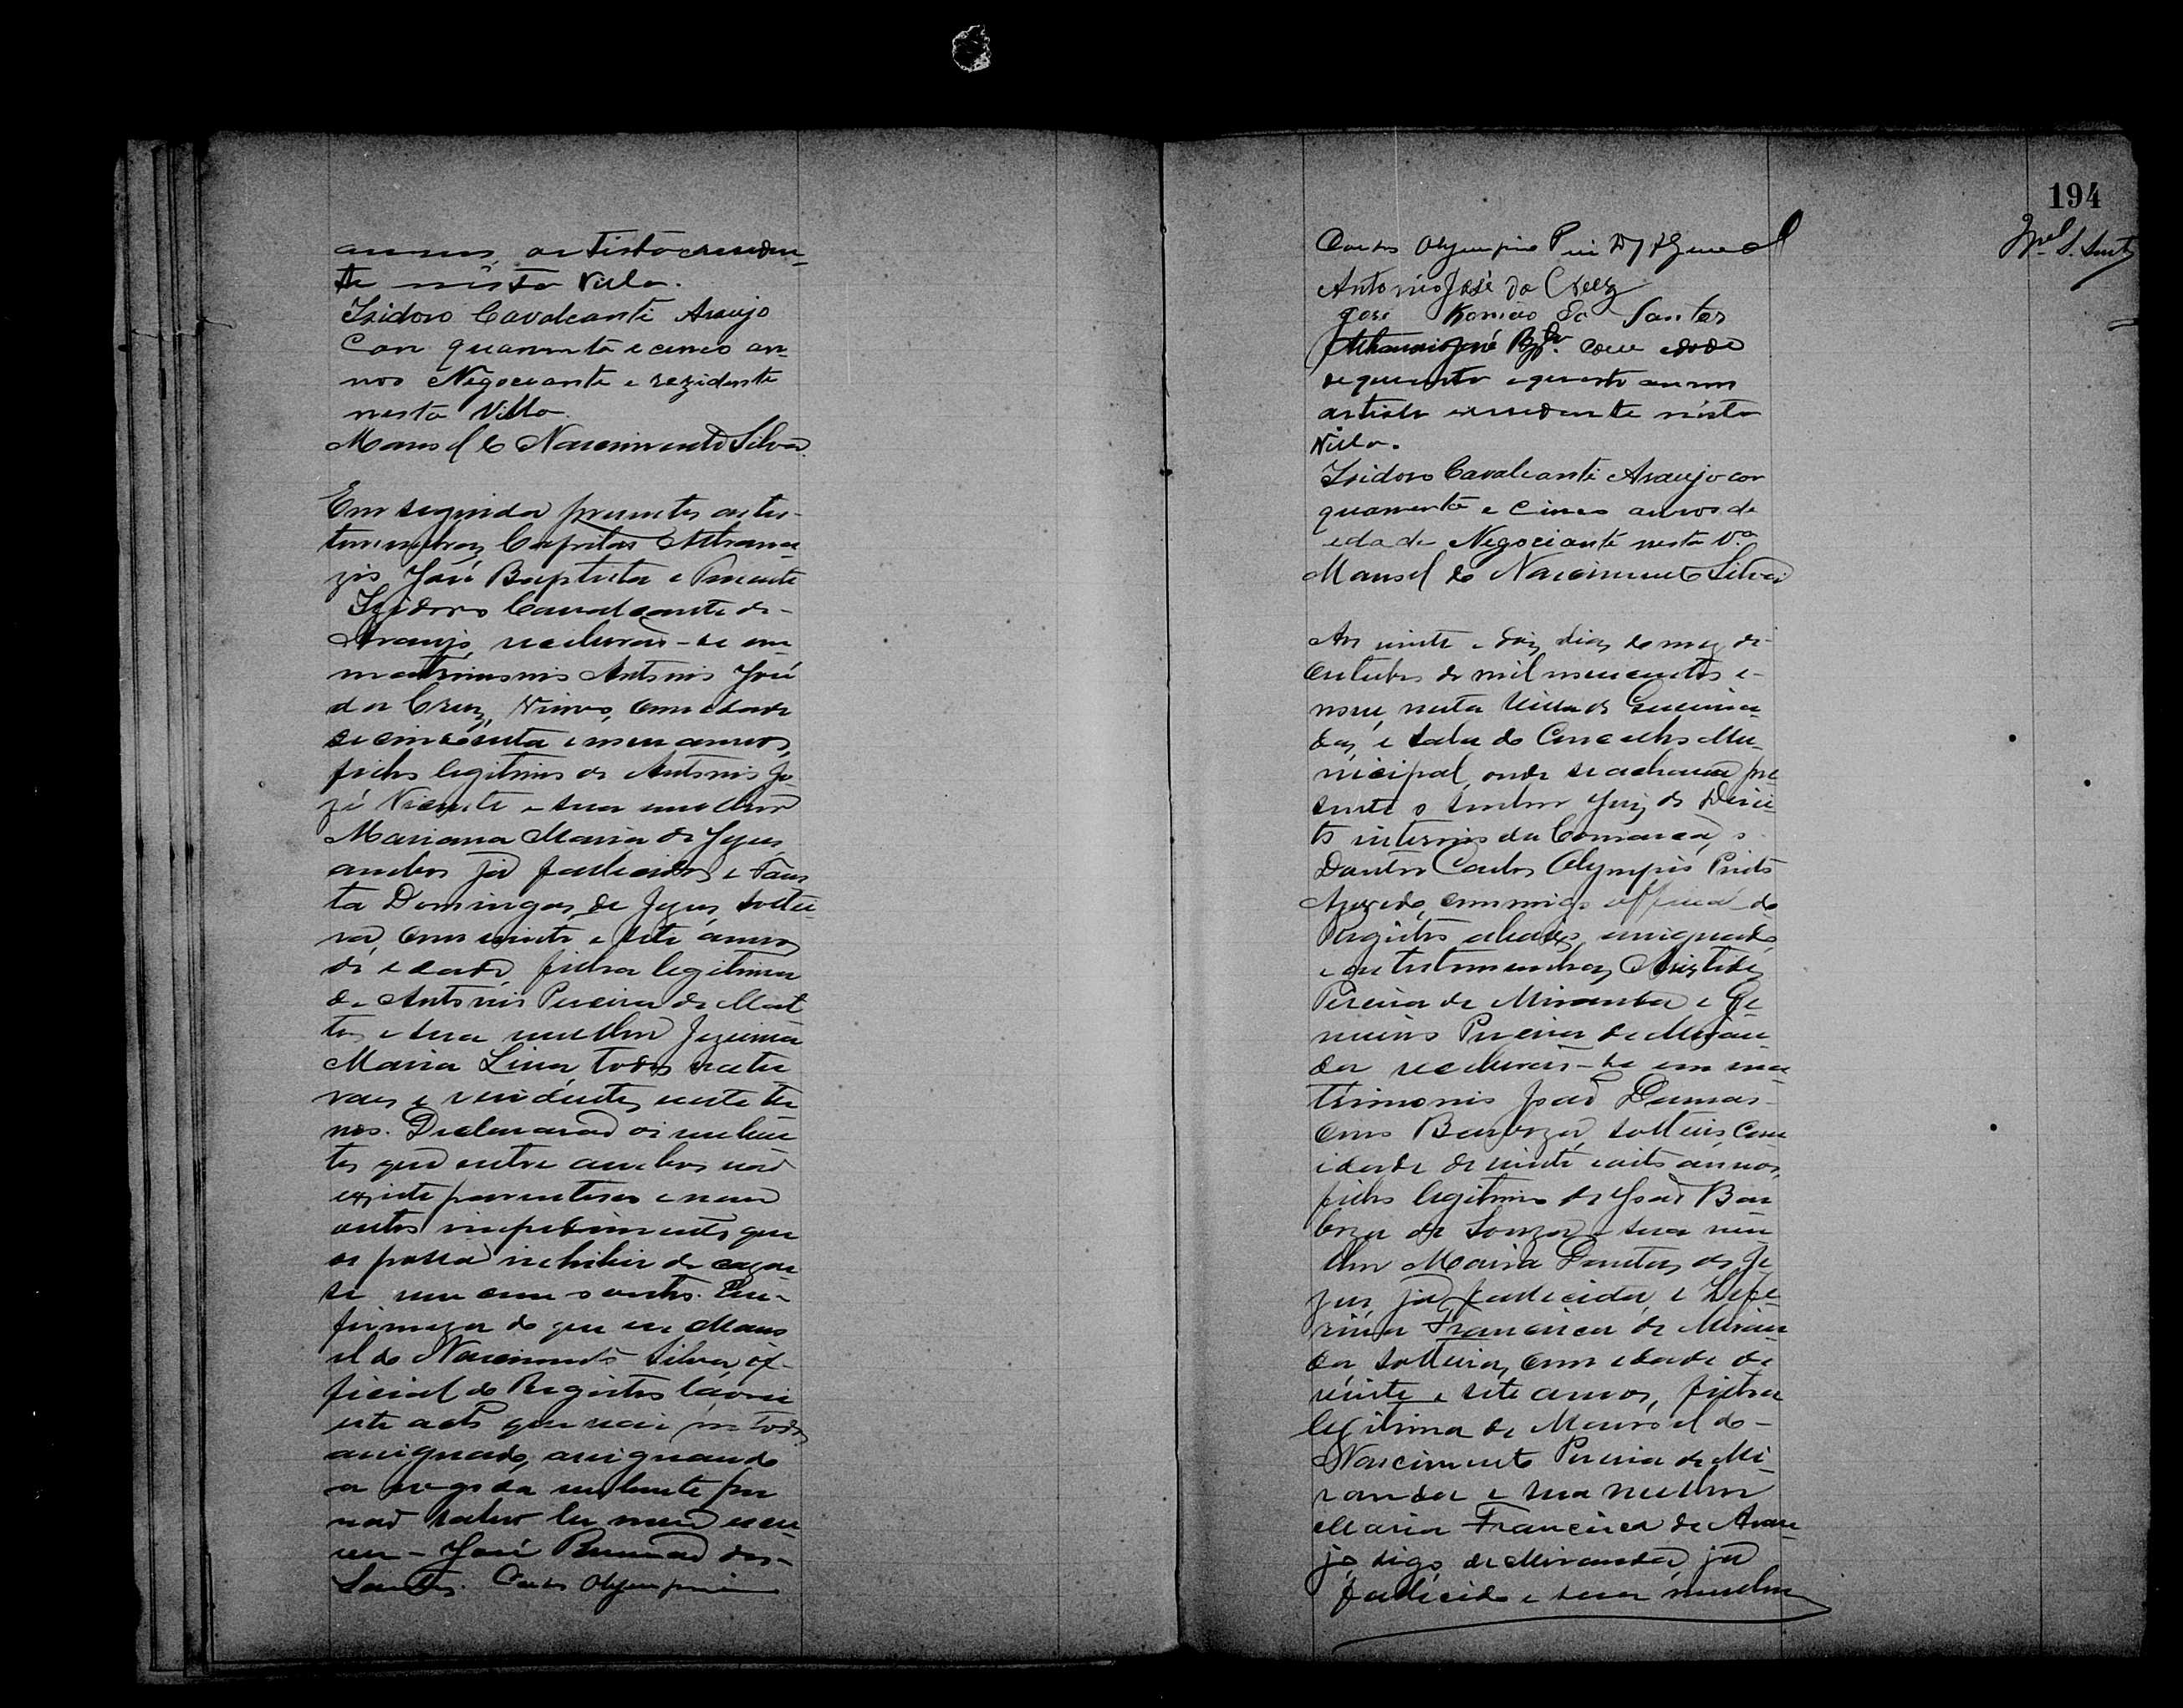 annos, artista e residen-
te nésta Villa.
Izidoro Cavalcanti Araujo
Com quarenta e cinco an-
nos Negociante e rezidente
nesta Villa.
Manoel do Nascimento Silva.
Em seguida presentes as tes-
temunhas, Capitão Athana-
zio José Baptista e Tenente
Izidoro Cavalcante de
Araujo, receberão-se em
matrimonio Antonio José
da Cruz, Viuvo, com edade
de cincoenta e annos,
filho legitimo de Antonio Jo-
zé Vicente e sua mulher
Mariana Maria de Jezus,
ambos já fallecidos, e
ta Domingas de Jezus, soltei-
ra, com vinte e sete annos
de edade, filha legitima
de Antonio Pereira de Mat-
tos e sua mulher Jezuina
Maria Lima, todos natu-
raes e residentes neste ter-
mo. Declararão os nuben-
tes que entre ambos não
existe parentesco e nem
outro impedimento que
os possa inhibir de cazar-
se um com o outro. Em
firmeza do que eu Mano-
el do Nascimento Silva, of-
ficial do Registro lavrei
este acto que vai por todos
assignado, assignando
a rogo da nubente por
não saber ler nem escre-
ver - José Romão dos
Santos. Carlos Olympio
194
Carlos Olympio P
Antonio José da Cruz
José Romão do Santos
Athanazio José Bapta. com edade
de quarenta e quatro annos
artista e residente nésta
Villa.
Izidoro Cavalcanti Araujo con
quarenta e Cinco annos de
edade Negociante nesta Va.
Manoel do Nascimento Silva
Aos vinte e dois dias do mez de
Outubro de mil novecentos e
nove, nesta Villa de
das, e sala do Concelho Mu-
nicipal, onde se achava pre-
sente o senhor Juiz de Direi-
to interino da Comarca, o
Doutor Carlos Olympio Pinto
Azevedo, commigo official do
Registro abaixo, assignado
e as testemunhas, Aristides
Pereira de Miranda e Ge-
nuino Pereira de Miran-
da receberão-se em ma-
trimonio João Damas-
ceno Barboza, solteiro, com
idade de vinte e oito annos,
filho legitimo de João Bar-
boza de Souza e sua mu-
lher Maria Dantas de Je-
zus, já fallecida, e Zefe-
rina Francisca de Miran-
da solteira, com edade de
vinte e sete annos, filha
legitima de Manoel do
Nascimento Pereira de Mi-
randa e sua mulher
Maria Francisca de Arau-
jo, digo, de Miranda, já
fallecido e sua mulher